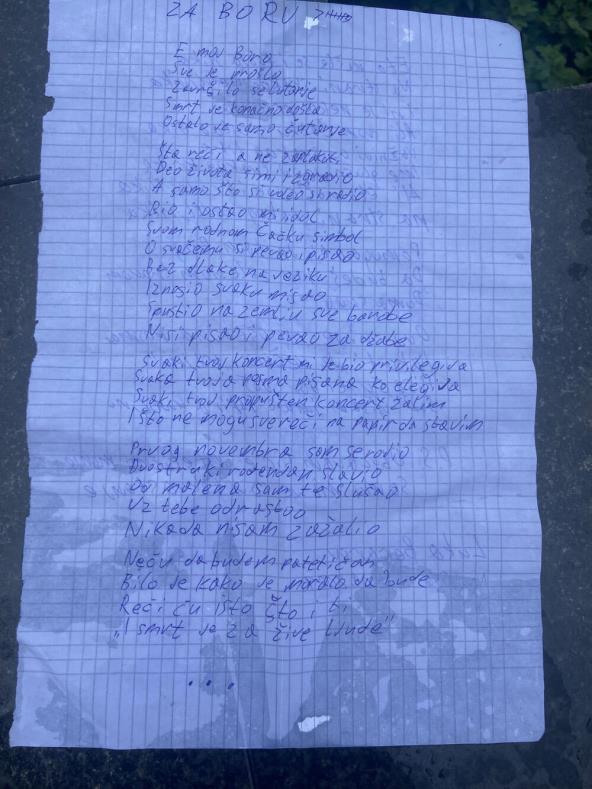 ZA BORU
E moj Bora
Sve je prošlo
Završilo se lutanje
Smrt je konačno došla
Ostalo je samo ćutanje
Šta reći a ne zaplakati
Deo života si mi izgradio
A samo što si video si radio
Bio i ostao mi idol
Svom rodnom Čačku simbol
O svačemu si pevao i pisao
Bez dlake na jeziku
Iznosio svaku misao
Spustio na zemlju sve barabe
Nisi pisao i pevao za džabe
Svaki tvoj koncert mi je bio privilegija
Svaka tvoja pesma pisana ko elegija
Svaki tvoj propušten koncert žalim
I što ne mogu sve reći na papir da stavim
Prvog novembra sam se rodio
Dvostruki rođendan slavio
Od malena sam te slušao
Uz tebe odrastao
Nikada nisam zažalio
Neću da budem patetičan
Bilo je kako je moralo da bude
Reći ću isto što i ti
"I smrt je za žive ljude"
...